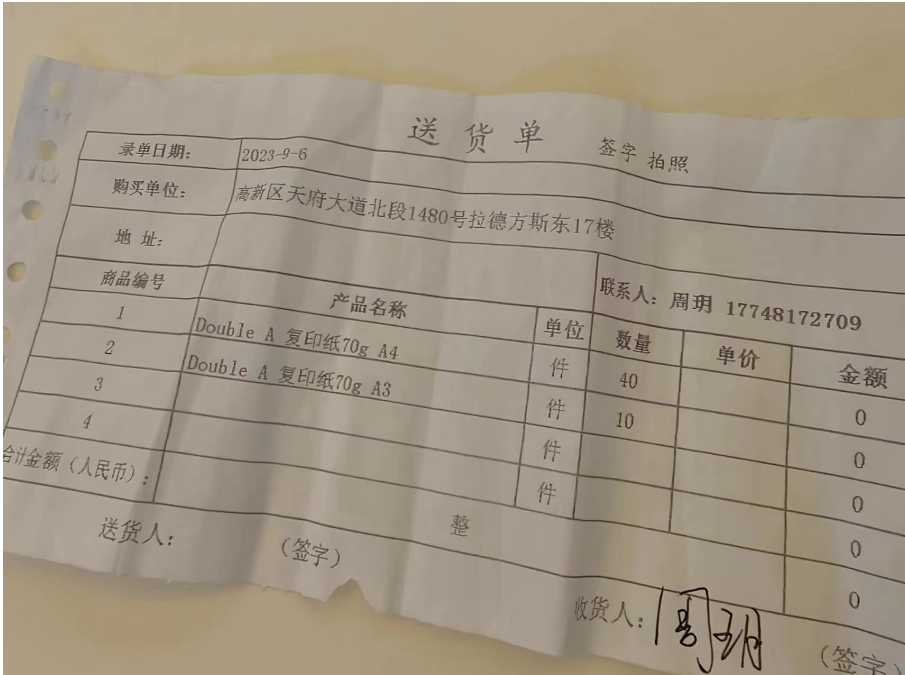 送货单 签字 拍照
录单日期: 2023-9-6
购买单位: 高新区天府大道北段1480号拉德方斯东17楼
地 址: 联系人: 周玥 17748172709
商品编号 产品名称 单位 数量 单价 金额
1 Double A 复印纸70g A4 件 40 0
2 Double A 复印纸70g A3 件 10 0
3 件 0
4 件 0
合计金额（人民币）: 整 0
送货人: （签字） 收货人: 周玥 （签字）